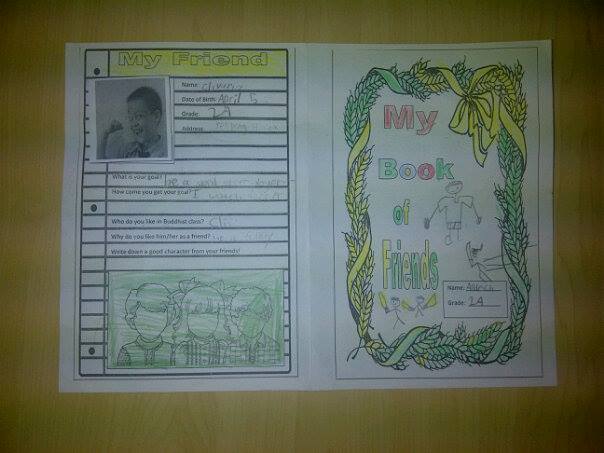 My Friend
Name:
Date of Birth: April 5
Grade: 2A
Address:
What is your goal? be a
How come you get your goal? I
Who do you like in Buddhist class?
Why do you like him/her as a friend?
Write down a good character from your friends!
My
Book
of
Friends
Name: Aldrich
Grade: 2A